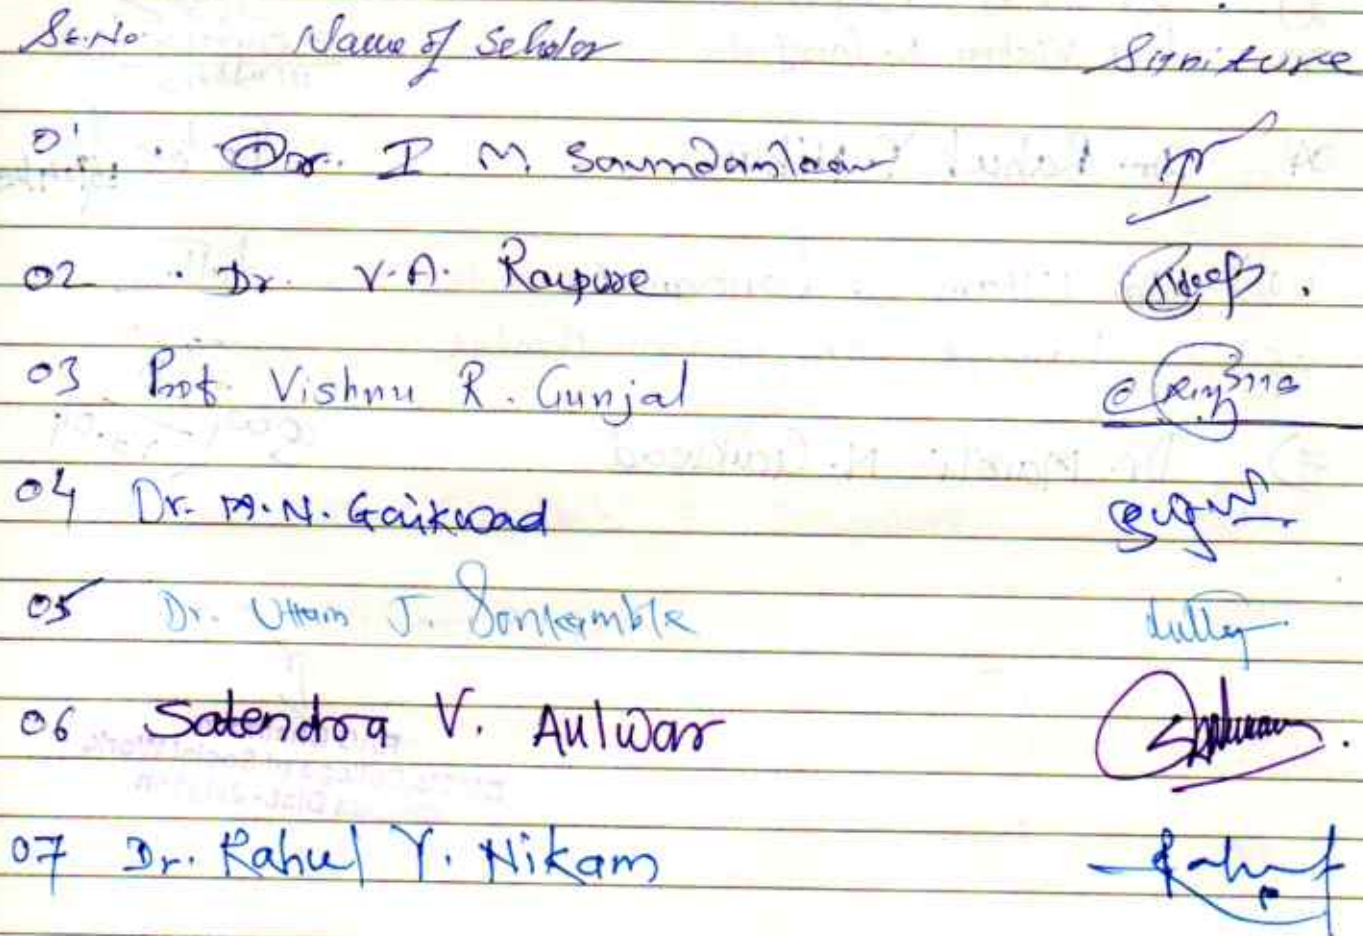 Sr.No. Name of Scholor Signiture
01 Dr. I M Saundankar
02 Dr. V.A. Raipure
03 Prof. Vishnu R. Gunjal
04 Dr. M.N. Gaikwad
05 Dr. Uttam J. Sonkamble
06 Satendra V. Aulwar
07 Dr. Rahul Y. Nikam Rahul